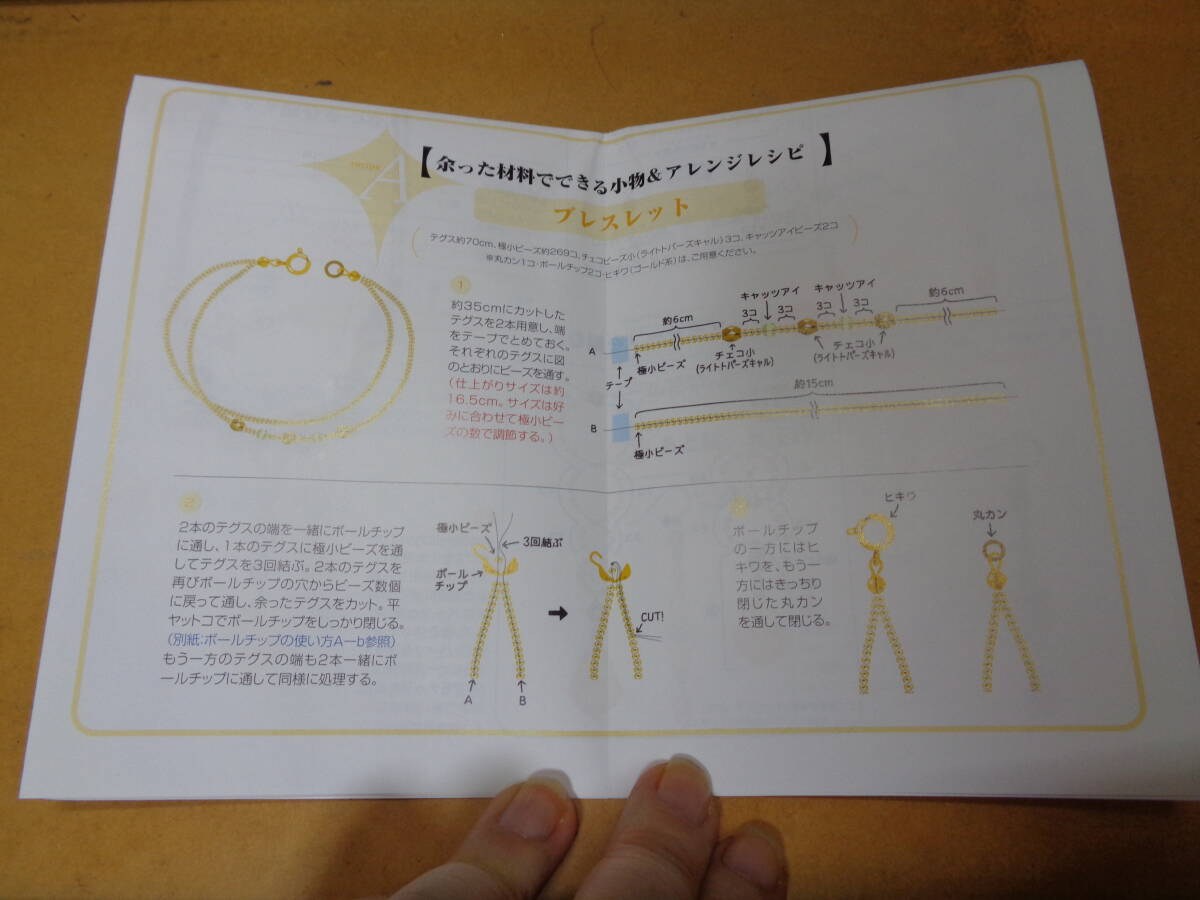 recipe
A
【余った材料でできる小物&アレンジレシピ】
ブレスレット
(テグス約70cm、極小ビーズ約269コ、チェコビーズ小(ライトトパーズキャル)3コ、キャッツアイビーズ2コ
※丸カン1コ・ボールチップ2コ・ヒキワ(ゴールド系)は、ご用意ください。)
1
約35cmにカットした
テグスを2本用意し、端
をテープでとめておく。
それぞれのテグスに図
のとおりにビーズを通す。
(仕上がりサイズは約
16.5cm。サイズは好
みに合わせて極小ビー
ズの数で調節する。)
キャッツアイ キャッツアイ
約6cm 3コ 3コ 3コ 3コ 約6cm
A
極小ビーズ
チェコ小
(ライトトパーズキャル)
チェコ小
(ライトトパーズキャル)
テープ
約15cm
B
極小ビーズ
2
2本のテグスの端を一緒にボールチップ
に通し、1本のテグスに極小ビーズを通
してテグスを3回結ぶ。2本のテグスを
再びボールチップの穴からビーズ数個
に戻って通し、余ったテグスをカット。平
ヤットコでボールチップをしっかり閉じる。
(別紙:ボールチップの使い方A−b参照)
もう一方のテグスの端も2本一緒にボ
ールチップに通して同様に処理する。
極小ビーズ
3回結ぶ
ボール
チップ
CUT!
A B
3
ボールチップ
の一方にはヒ
キワを、もう一
方にはきっちり
閉じた丸カン
を通して閉じる。
ヒキワ
丸カン